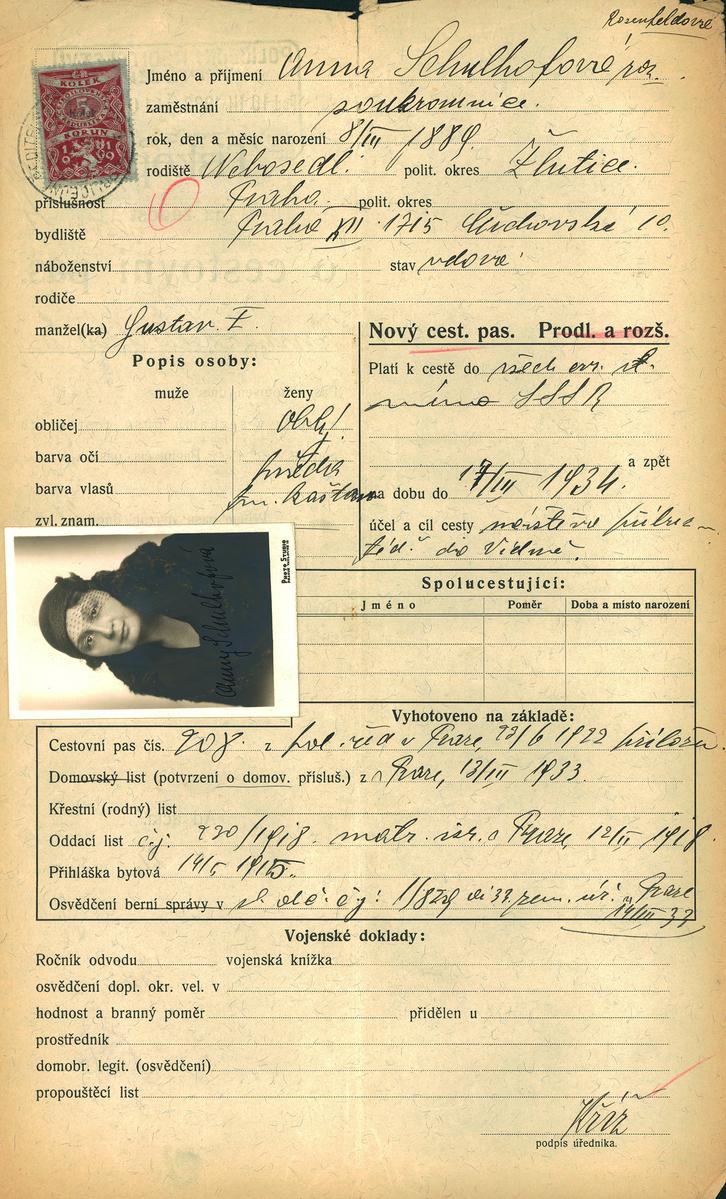 Rosenfeldové
KOLEK
5
KORUN
1919
Jméno a příjmení Anna Schulhofová roz.
zaměstnání soukromnice.
rok, den a měsíc narození 8/III 1889.
rodiště Nebosedl. polit. okres Žlutice.
příslušnost Praha. polit. okres
bydliště Praha XII. 1715 10.
náboženství stav vdova
rodiče
manžel(ka) Gustav
Nový cest. pas. Prodl. a rozš.
Popis osoby:
muže ženy
Platí k cestě do všech evr. st.
mimo SSSR
obličej obl.
barva očí hnědé
barva vlasů tm. kaštan
zvl. znam.
a zpět
na dobu do 17/III 1934.
účel a cíl cesty návštěva
do Vídně.
PHOTO STUDIO
Anny Schulhofová
Spolucestující:
Jméno Poměr Doba a místo narození
Vyhotoveno na základě:
Cestovní pas čís. 908. z pol. řed v Praze, 22/6 1922
Domovský list (potvrzení o domov. přísluš.) z Praze, 13/III 1933.
Křestní (rodný) list
Oddací list čj. 220/1918. matr. isr. Praze, 12/II 1918.
Přihláška bytová 14/5 1915.
Osvědčení berní správy v čj: zem. úř. Praze
14/III 33
Vojenské doklady:
Ročník odvodu vojenská knížka
osvědčení dopl. okr. vel. v
hodnost a branný poměr přidělen u
prostředník
domobr. legit. (osvědčení)
propouštěcí list
Kříž
podpis úředníka.